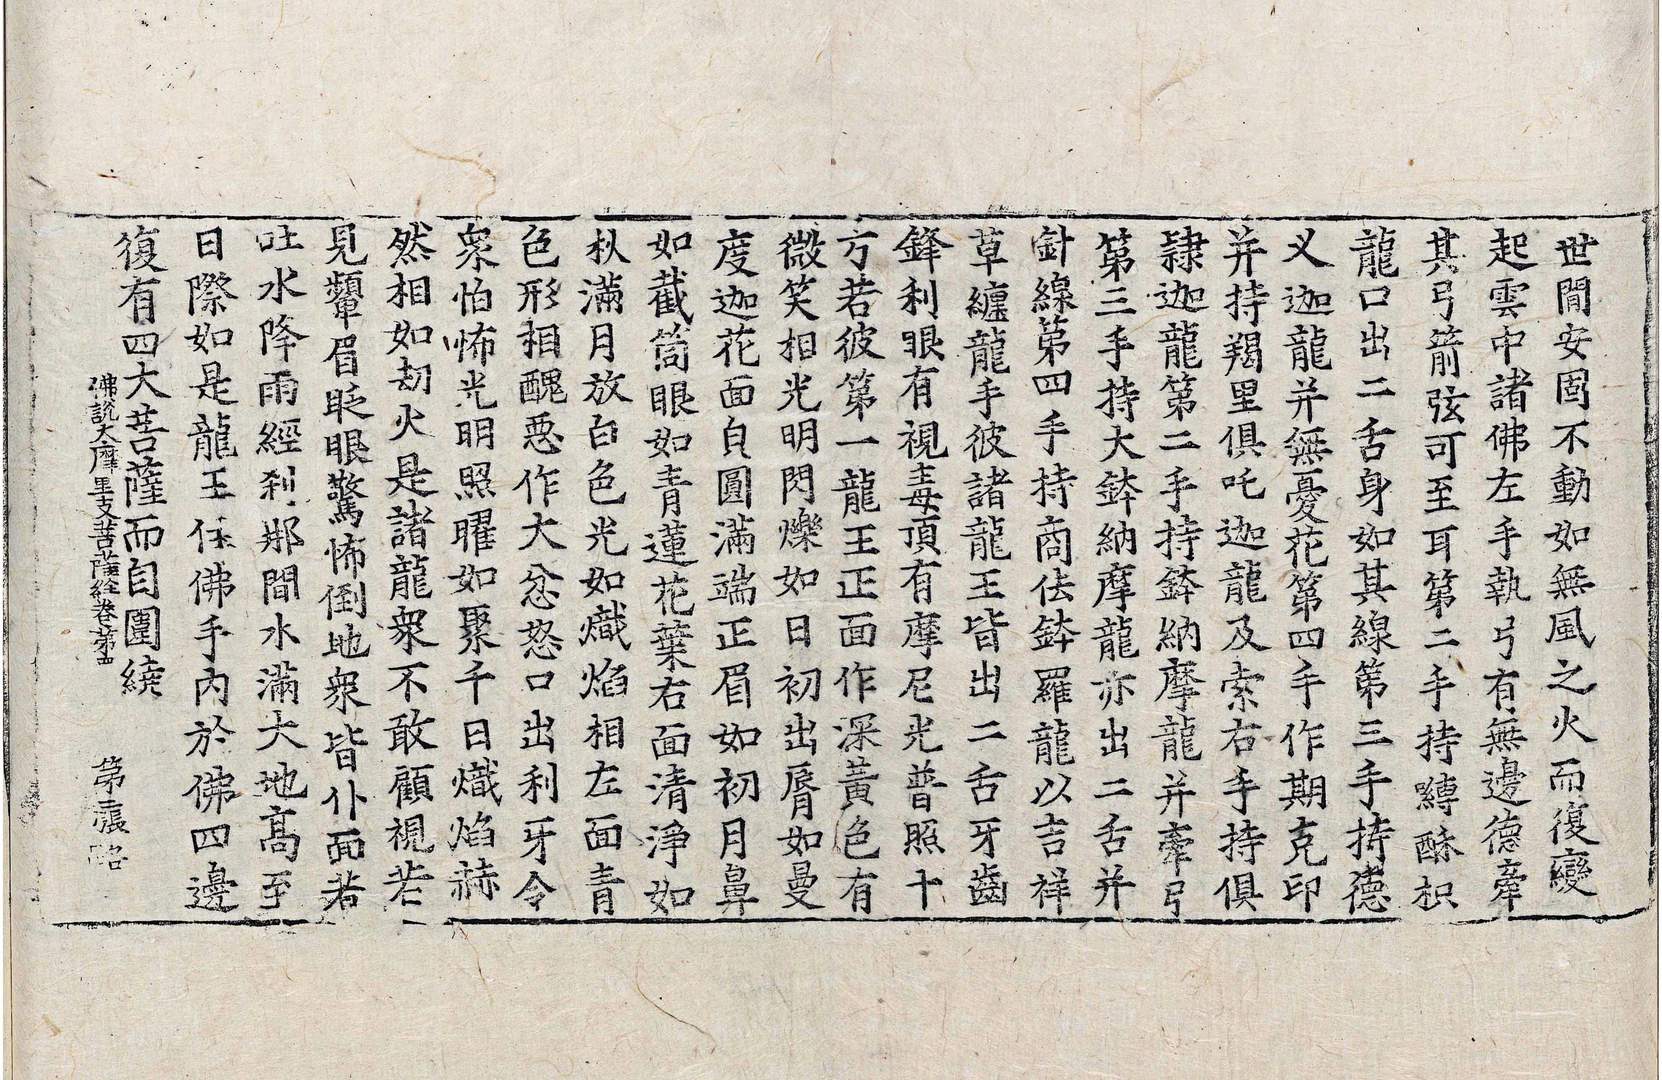 世間安固不動如無風之火而復變
起雲中諸佛左手執弓有無邊德牽
其弓箭弦可至耳第二手持嚩酥枳
龍口出二舌身如其線第三手持德
叉迦龍并無憂花第四手作期克印
并持羯里俱吒迦龍及索右手持俱
隸迦龍第二手持鉢納摩龍并牽弓
第三手持大鉢納摩龍亦出二舌并
針線第四手持商佉鉢羅龍以吉祥
草纏龍手彼諸龍王皆出二舌牙齒
鋒利眼有視毒頂有摩尼光普照十
方若彼第一龍王正面作深黃色有
微笑相光明閃爍如日初出脣如曼
度迦花面白圓滿端正眉如初月鼻
如截筒眼如青蓮花葉右面清淨如
秋滿月放白色光如熾焰相左面青
色形相醜惡作大忿怒口出利牙令
衆怕怖光明照曜如聚千日熾焰赫
然相如劫火是諸龍衆不敢顧視若
見顰眉眨眼驚怖倒地衆皆仆面若
吐水降雨經刹那間水滿大地高至
日際如是龍王任佛手內於佛四邊
復有四大菩薩而自圍繞
佛說大摩里支菩薩經卷第四 第張